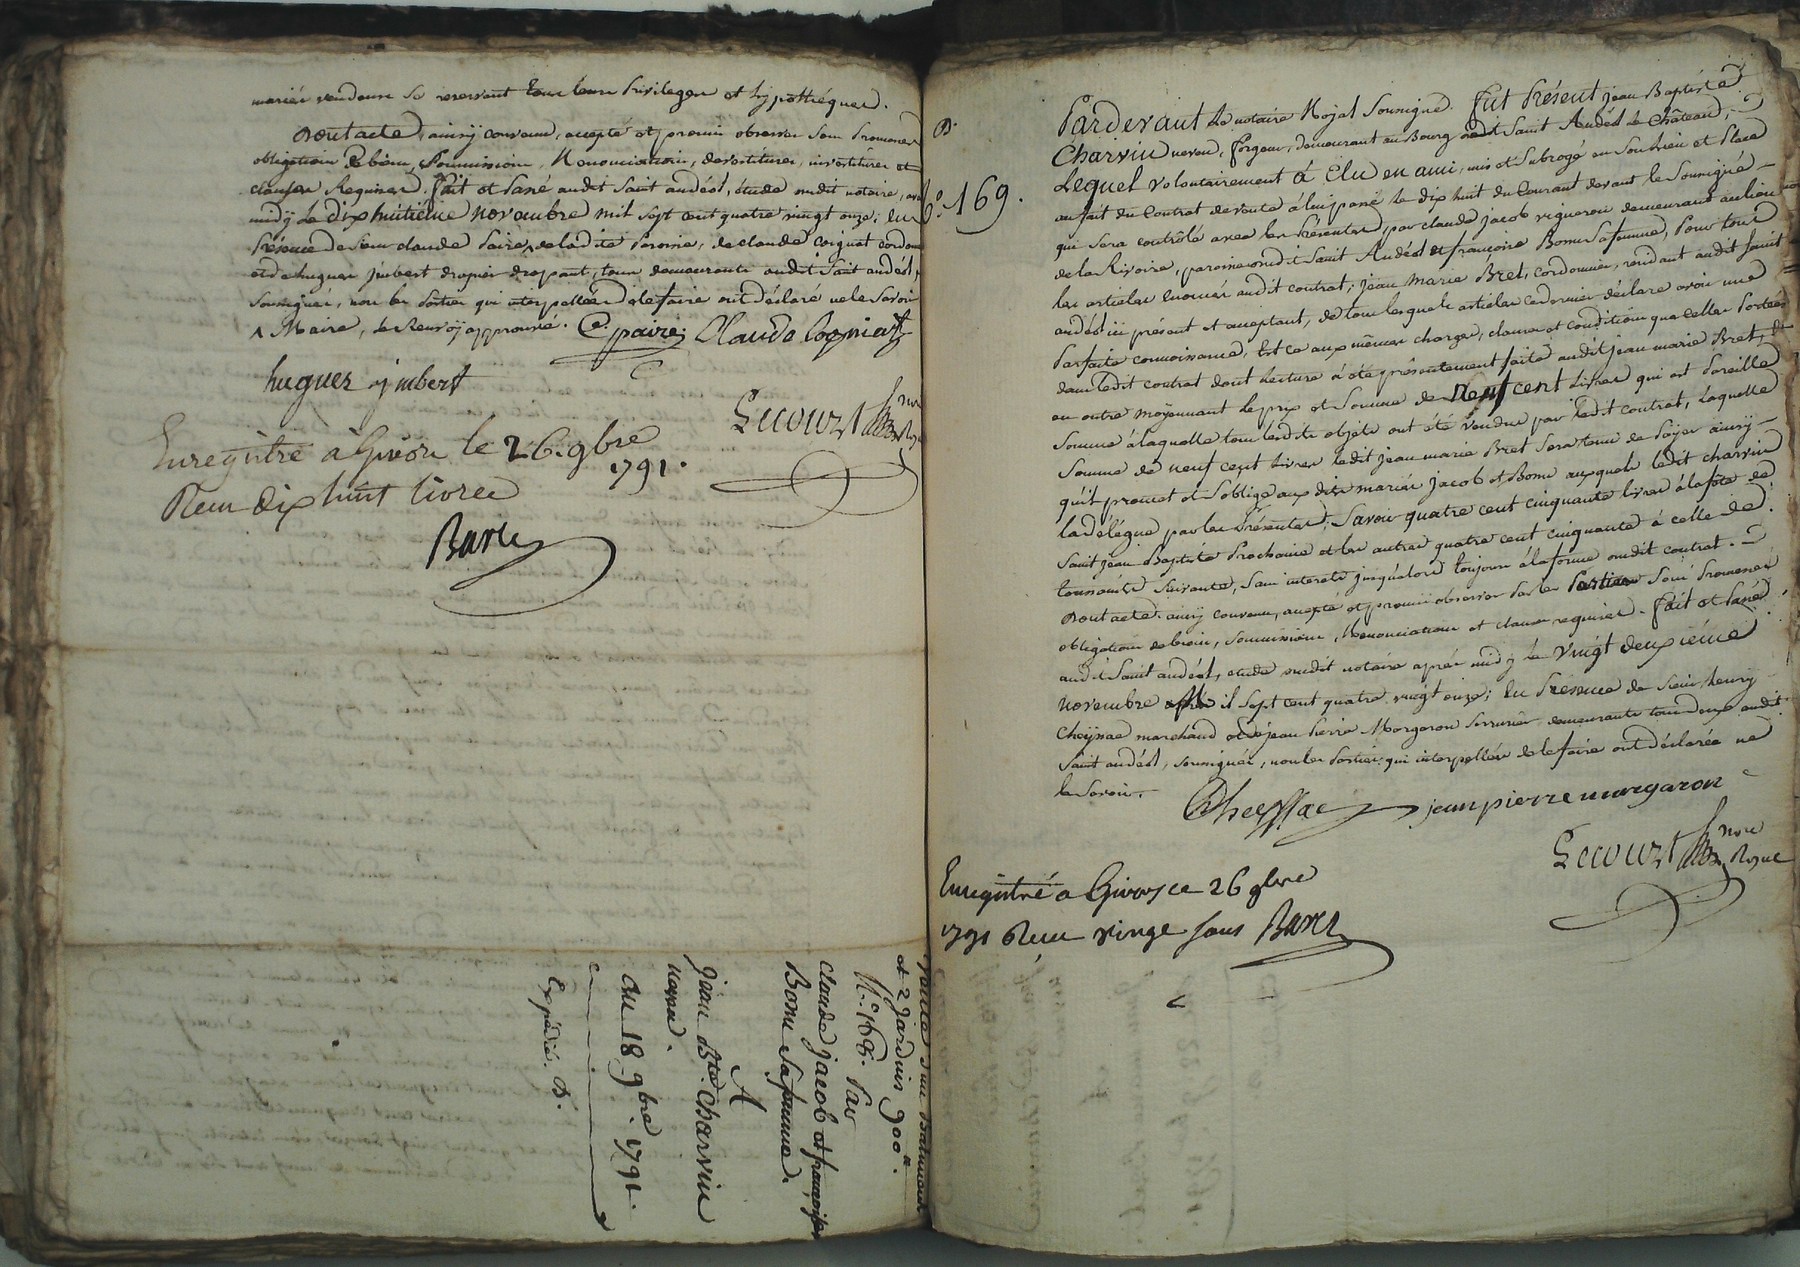 mariés vendeurs se reservent tous leurs Privileges et hypothéques.
Dont acte, ainsy convenu, accepté et promis observer sous Promesses
obligations de biens, Soumissions, Renonciations, devestitures, investitures et
clauses Requises. Fait et Passé audit Saint andéol, étude dudit notaire, avant
midy le dix huitième novembre mil sept cent quatre vingt onze; En
Présence de Sieur claude Paire, de ladite Paroisse, de claude Cogniat cordonnier
et de hugues jmbert drapier drapant, tous demeurants audit Saint andéol,
Soussignés, non les Parties qui interpellées de le faire ont déclaré ne le Savoir
^ Maire, le Renvoy approuvé. C. paire Claude Cogniat
hugues jmbert
Lecourt nore Royal
Enregistré à Givors le 26. 9bre
1791.
Reçu dix huit livres
Barle
Vente d'un Batiment
et 2 Jardins 900ᴸ.
N.° 168. Par
Claude jacob et françoise
Bonu Sa femme.
A
Jean Bte. Charvin
neveu.
Du 18. 9bre. 1791.
Expédié. B.
B.
N.° 169.
Pardevant le notaire Royal Soussigné. Fut Présent jean Baptiste
Charvin neveu, forgeur, demeurant au Bourg dudit Saint Andéol le Château,
Lequel volontairement à Elu en ami, mis et Subrogé en Son Lieu et Place
au fait du Contrat de vente à lui passé le dix huit du Courant devant le Soussigné
qui Sera contrôlé avec les Présentes, par claude jacob vigneron demeurant au lieu
de la Rivoire, paroisse dudit Saint Andéol et françoise Bonu Sa femme, Pour tous
les articles énoncés audit contrat; jean Marie Bret, cordonnier, résidant audit Saint
andéol ici présent et acceptant, de tous lesquels articles ce dernier déclare avoir une
Parfaite connoissance, Est ce aux mêmes charges, clauses et conditions que celles Portées
dans ledit contrat dont Lecture à été présentement faite audit jean marie Bret, Et
en outre moyennant le prix et Somme de neuf cent Livres qui est Pareille
Somme à laquelle tous lesdits objets ont été vendus par ledit contrat, Laquelle
Somme de neuf cent Livres ledit jean marie Bret Sera tenu de Payer ainsy
qu'il promet et S'oblige aux dits mariés jacob et Bonu auxquels ledit charvin
la délégue par les Présentes; Savoir quatre cent cinquante livres à la fête de
Saint jean Baptiste Prochaine et les autres quatre cent cinquante à celle de
toussaints Suivante, Sans interets jusqu'alors toujours à la forme dudit contrat.
Dont acte. ainsy convenu, accepté et promis observer Par les Parties Sous Promesses
obligations de biens, Soumissions, Renonciations et clauses requises. Fait et Passé
audit Saint andéol, etude dudit notaire après midy le vingt deuxième
novembre mil Sept cent quatre vingt onze; En Présence de Sieur henry
Cheyssac marchand et de jean Pierre Margaron Serrurier demeurants tous deux audit
Saint andéol, Soussignés, non les Parties qui interpellées de le faire ont déclarées ne
le Savoir.
Cheyssac jean pierre margaron
Lecourt nore Royal
Enregistré a Givors ce 26 9bre
1791 Reçu vingt sous Barle